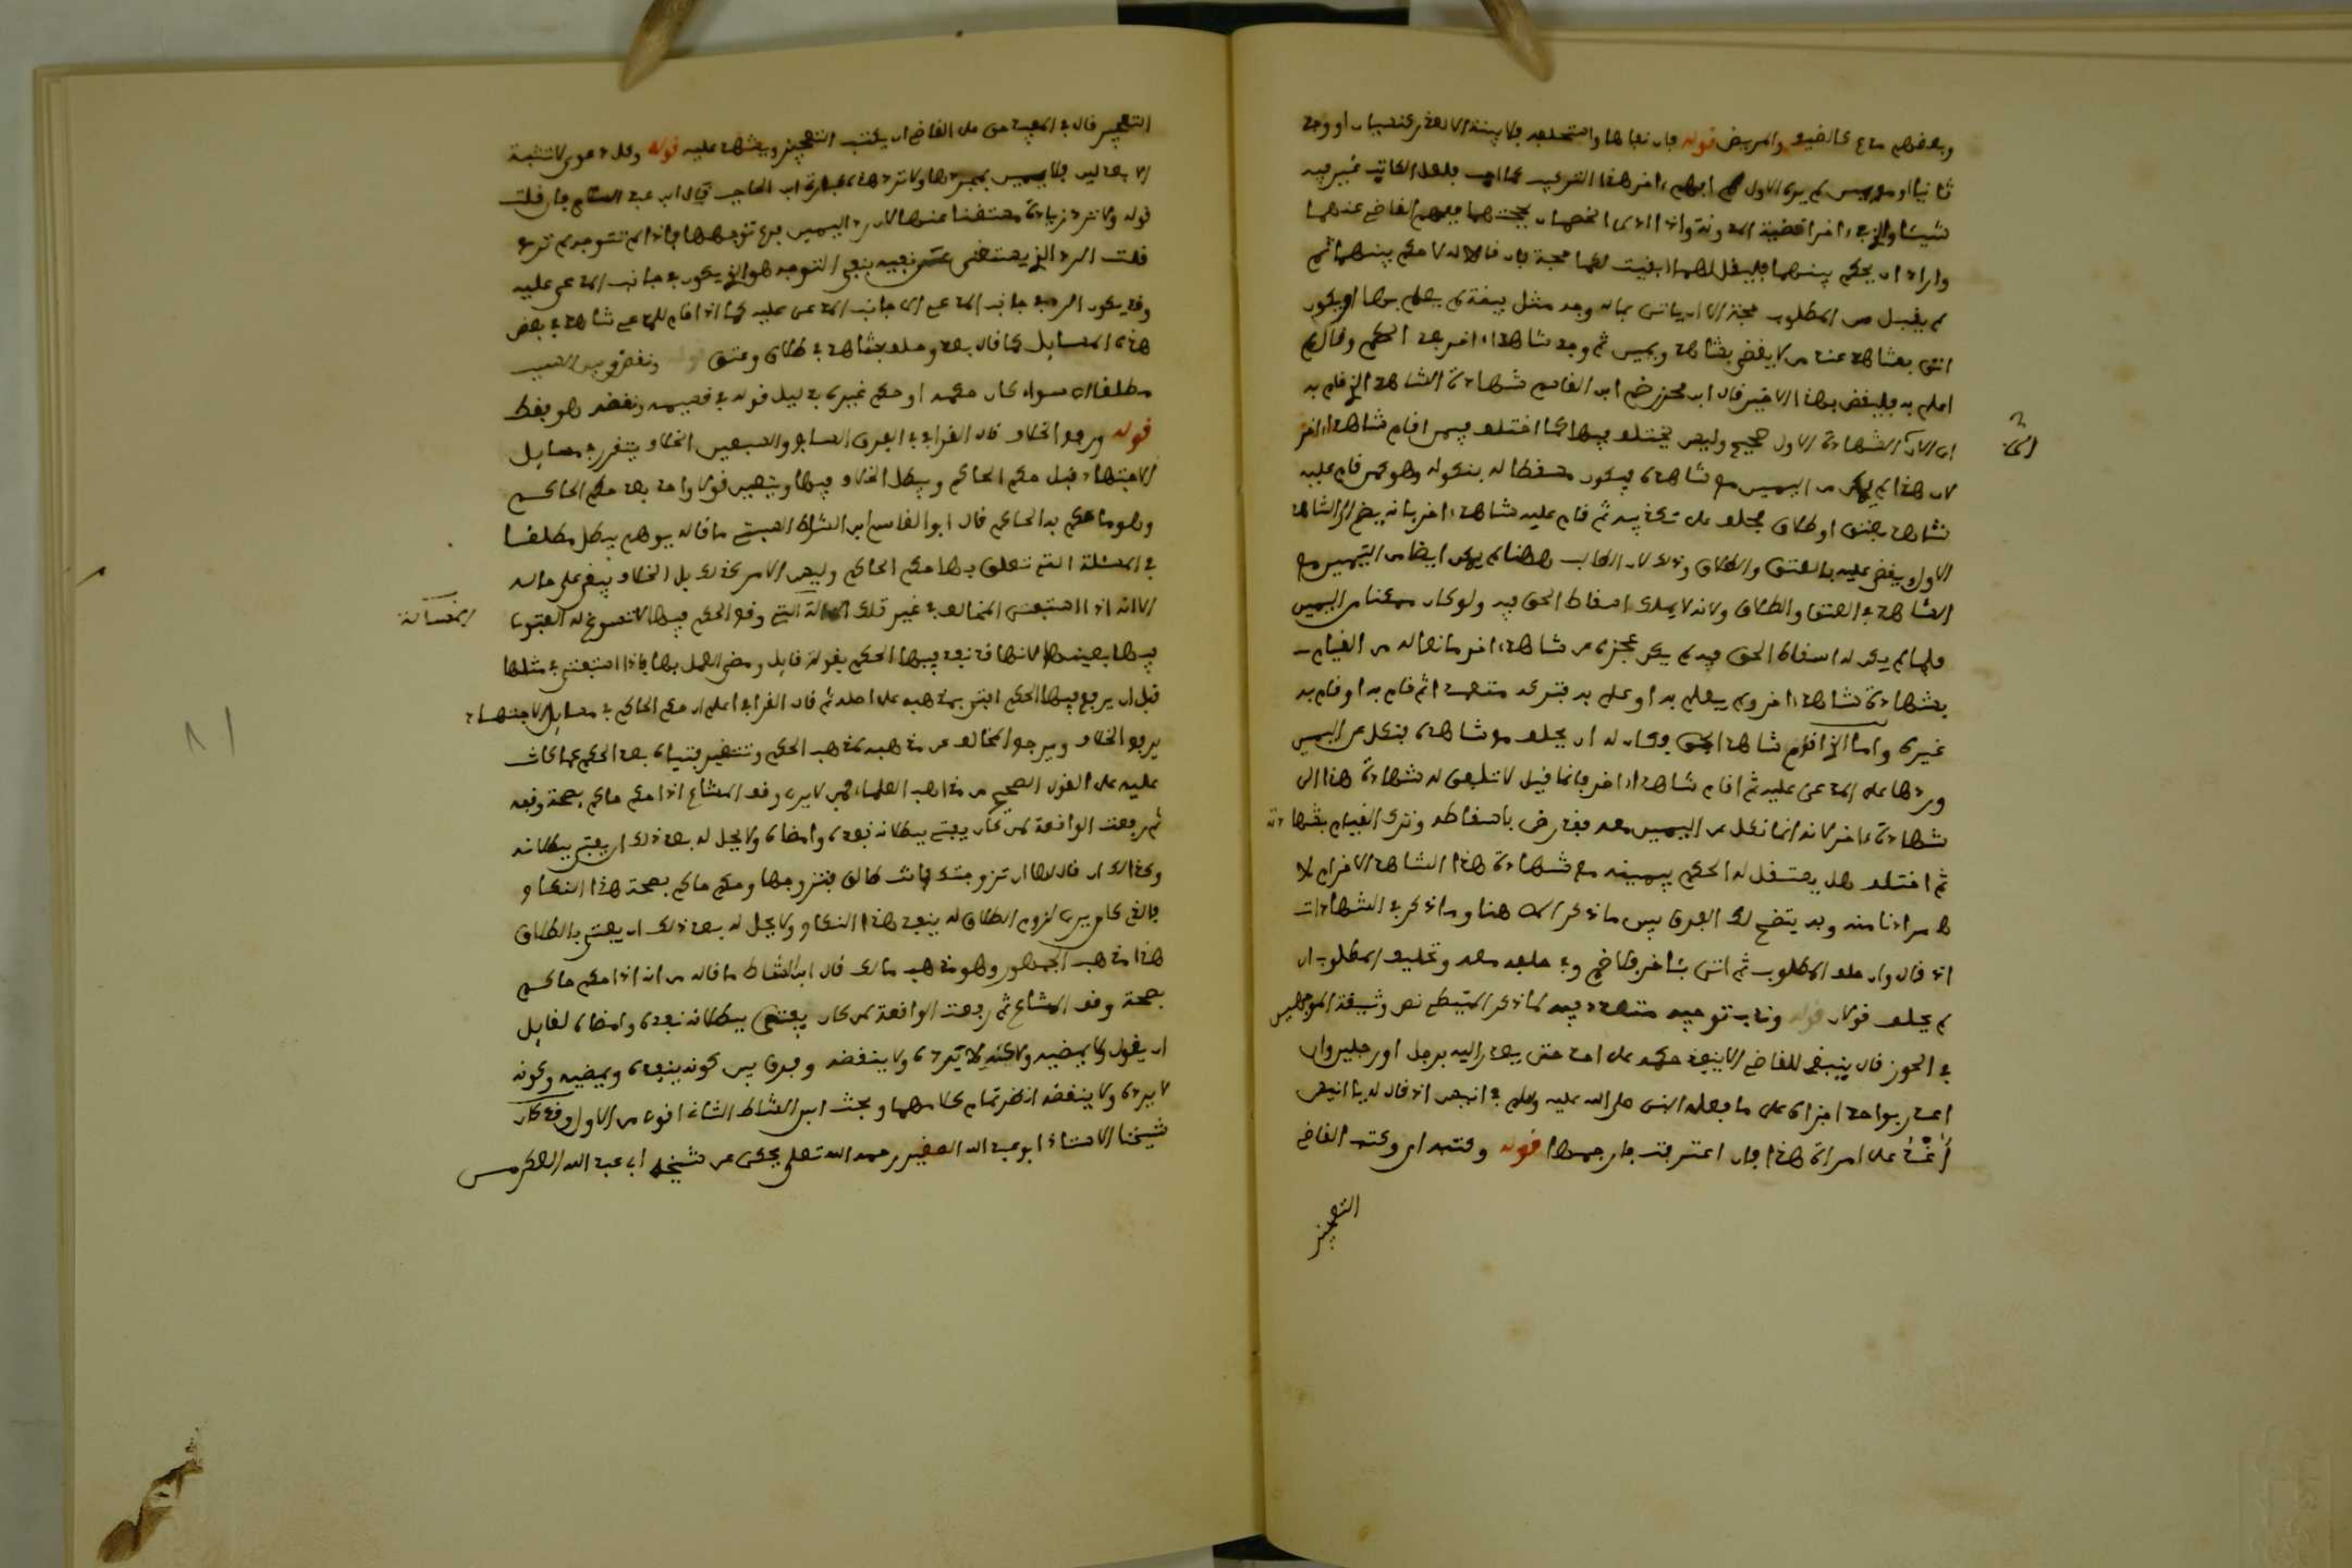 وبعضهم مدع كالضيف والمريض قوله فان نفاها واستحلفه فلا بينة الا لعذر كنسيان او وجد
ثانيا او مع يمين لم يره الاول
واراد ان يحكم بينهما فليقل لهما ابقيت لكما حجة فان قالا لا حكم بينهما ثم
لم يقبل من المطلوب حجة الا ان ياتي بما له وجه مثل بينة لم يعلم بها او يكون
اتى بشاهد عند من لا يقضي بشاهد ويمين ثم وجد شاهدا اخر بعد الحكم وقال لم
اعلم به فليقض بهذا الاخير قال ابن محرز ضم ابن القاسم شهادة الشاهد الذي قام به
الشهادة الاول صحيح وليس يختلف فيها كما اختلف فيمن اقام شاهدا اخر
لان هذا لم يمكن من اليمين مع شاهده فيكون مسقطا له بنكوله وهو كمن قام عليه
شاهد بعتق او طلاق فحلف على تكذيبه ثم قام عليه شاهد اخر بانه يضم الى الشاهد
الاول ويقضى عليه بالعتق والطلاق وذلك لان الطالب هاهنا لم يمكن ايضا من اليمين مع
الشاهد في العتق والطلاق ولانه لا يملك اسقاط الحق فيه ولو كان ممكنا من اليمين
فلما لم يكن له اسقاط الحق فيه لم يكن عجزه عن شاهد اخر مانعا له من القيام
بشهادة شاهد اخر لم يعلم به او علم به فتركه متعمدا ثم قام به او قام به
غيره واما الذي اقام شاهدا بحق وكان له ان يحلف مع شاهده فنكل عن اليمين
وردها على المدعى عليه ثم اقام شاهدا اخر فانما قيل لا تلفق له شهادة هذا الى
شهادة الاخر لانه انما نكل عن اليمين معه فقد رضي باسقاطه وترك القيام بشهادته
ثم اختلف هل يستقل له الحكم بيمينه مع شهادة هذا الشاهد الاخر ام لا
مرادنا منه وبه يتضح لك الفرق بين ما ذكر هنا وما ذكر في الشهادات
اذ قال وان حلف المطلوب ثم اتى بآخر فلا ضم وفي حلفه معه وتحليف المطلوب ان
لم يحلف قولان قوله وندب توجيه متعدد فيه كما ذكر المتيطي نص وثيقة الموجهين
في الحوز قال ينبغي للقاضي الا ينفذ حكمه على احد حتى يعذر اليه برجل او رجلين وان
اعذر بواحد اجزاه على ما فعله النبي صلى الله عليه وسلم في انيس اذ قال له يا انيس
اغد على امراة هذا فان اعترفت فارجمها قوله وكتبه اي وكتب القاضي
التعجيز
التعجيز قال في المفيد حق على القاضي ان يكتب التعجيز ويشهد عليه قوله وكل دعوى لا تثبت
الا بعدلين فلا يمين بمجردها ولا ترد هذه عبارة ابن الحاجب قال ابن عبد السلام فان قلت
قوله ولا ترد زيادة مستغنى عنها لان رد اليمين فرع توجهها فاذا لم تتوجه لم ترد
قلت الرد الذي يستغنى عن نفيه بنفي التوجه هو الذي يكون في جانب المدعى عليه
وقد يكون الرد من جانب المدعي الى جانب المدعى عليه كما اذا اقام المدعي شاهدا في بعض
هذه المسايل كما قال بعد وحلف بشاهد في طلاق وعتق قوله ونقض وبين السبب
مطلقا سواء كان حكمه او حكم غيره بدليل قوله في قسيمه ونقضه هو فقط
قوله ورفع الخلاف قال القرافي في الفرق السابع والسبعين الخلاف يتقرر في مسايل
الاجتهاد قبل حكم الحاكم ويبطل الخلاف فيها ويتعين قولا واحدا بعد حكم الحاكم
وهو ما حكم به الحاكم قال ابو القاسم ابن الشاط السبتي ما قاله يوهم يبطل مطلقا
في المسئلة التي تعلق بها حكم الحاكم وليس الامر كذلك بل الخلاف يبقى على حاله
الا انه اذا استفتي المخالف في غير تلك التي وقع الحكم فيها لا تسوغ له الفتوى
فيها بعينها لانها قد نفذ فيها الحكم بقولة قايل ومضى العمل بها فاذا استفتي في مثلها
قبل ان يرفع فيها الحكم افتى بمذهبه على اصله ثم قال القرافي اعلم ان حكم الحاكم في مسايل الاجتهاد
يرفع الخلاف ويرجع المخالف عن مذهبه لمذهب الحكم وتتغير فتياه بعد الحكم عما كانت
عليه على القول الصحيح من مذاهب العلماء فمن لا يرى وقف المشاع اذا حكم حاكم بصحة وقفه
ثم رفعت الواقعة لمن كان يفتي ببطلانه نفذه وامضاه ولا يحل له بعد ذلك ان يفتي ببطلانه
وكذلك ان قال لها ان تزوجتك فانت طالق فتزوجها وحكم حاكم بصحة هذا النكاح
فالذي كان يرى لزوم الطلاق له ينفذ هذا النكاح ولا يحل له بعد ذلك ان يفتي بالطلاق
هذا مذهب الجمهور وهو مذهب مالك قال ابن الشاط ما قاله من انه اذا حكم حاكم
بصحة وقف المشاع ثم رفعت الواقعة لمن كان يفتي ببطلانه نفذه وامضاه لقايل
ان يقول لا يمضيه ولا يرده ولا ينقضه وفرق بين كونه ينفذه ويمضيه وكونه
لا يرده ولا ينقضه انظر تمام كلامهما وبحث ابن الشاط الثاني اقوى من الاول وقد كان
شيخنا الاستاذ ابو عبد الله الصغير رحمه الله تعلى يحكي عن شيخه ابي عبد الله العكرمي